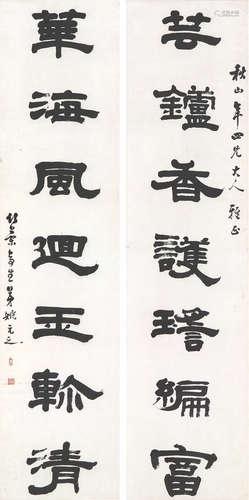 秋山年四兄大人雅正
芸鑪香護瑤編富
華海風迴玉軫清
姚元之